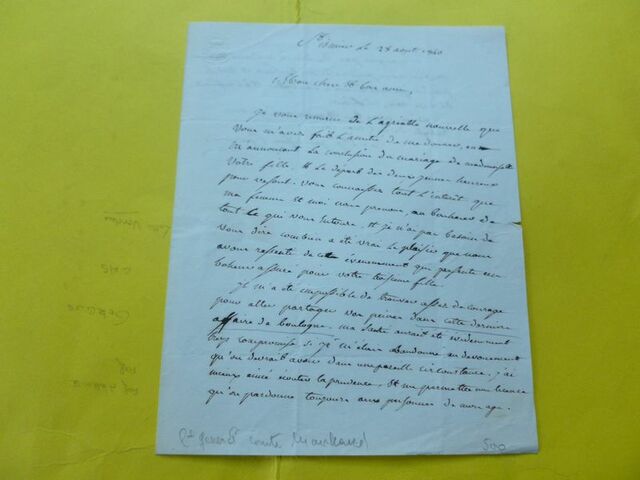 St Ismier Le 28 aout 1840
Mon cher et bon ami,
Je vous remercie de L'agréable nouvelle que
vous m'avez fait L'amitié de me donner, en
m'annoncant La conclusion du mariage de mademoiselle
votre fille et le depart des deux jeunes heureux
pour vous connaissez tout L'interet que
ma femme et moi nous prenons au bonheur de
tout ce qui vous entoure et je n'ai pas besoin de
vous dire combien a été vrai le plaisir que nous
avons ressenti de cet évenement qui présente un
bonheur assuré pour votre troisieme fille.
Il m'a été impossible de trouver assez de courage
pour aller partager vos peines dans cette derniere
affaire de boulogne. ma santé aurait été evidemment
trop compromise si je m'étais abandonné au devouement
qu'on devrait avoir dans une pareille circonstance. j'ai
mieux aimé écouter la prudence. et me permettre une licence
qu'on pardonne toujours aux personnes de mon age.
Gal comte Marchand
500